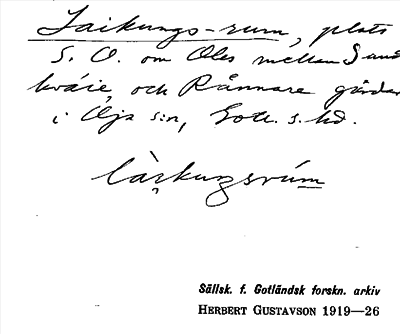 Laikungs-rum, plats
S. O. om Oles mellan Sand
kväie, och Rånnare gårdar
i Öja s:n, Gotl. s. hd.
làrkuŋsrúm
Sällsk. f. Gotländsk forskn. arkiv
HERBERT GUSTAVSON 1919—26